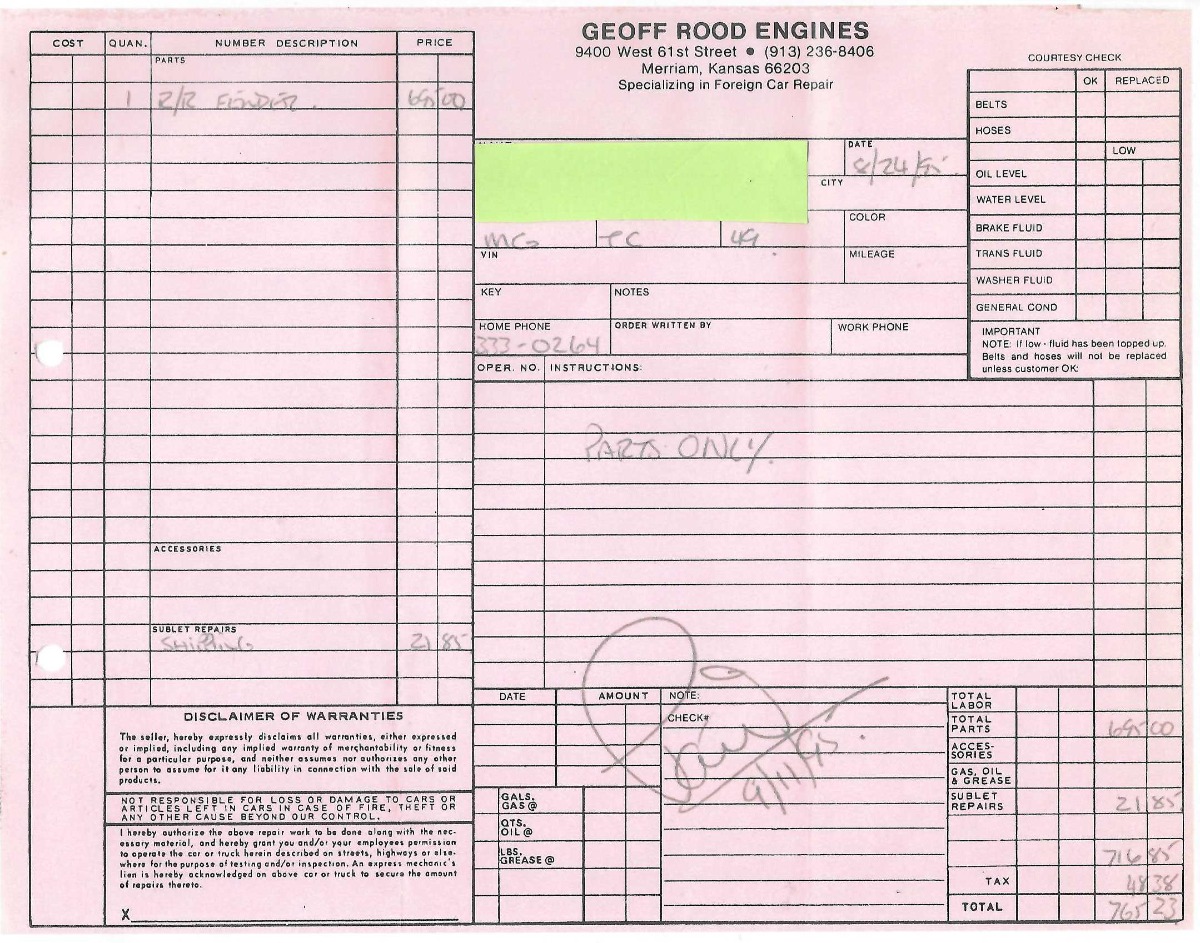 GEOFF ROOD ENGINES
9400 West 61st Street • (913) 236-8406
Merriam, Kansas 66203
Specializing in Foreign Car Repair
COST QUAN. NUMBER DESCRIPTION PRICE
PARTS
1 R/R FENDER. 695 00
ACCESSORIES
SUBLET REPAIRS
SHIPPING 21 85
DATE
8/24/95
CITY
MG TC 49
COLOR
VIN
MILEAGE
KEY NOTES
HOME PHONE ORDER WRITTEN BY WORK PHONE
333-0264
OPER. NO. INSTRUCTIONS:
PARTS ONLY.
COURTESY CHECK
OK REPLACED
BELTS
HOSES
LOW
OIL LEVEL
WATER LEVEL
BRAKE FLUID
TRANS FLUID
WASHER FLUID
GENERAL COND
IMPORTANT
NOTE: If low - fluid has been topped up.
Belts and hoses will not be replaced
unless customer OK:
DISCLAIMER OF WARRANTIES
The seller, hereby expressly disclaims all warranties, either expressed
or implied, including any implied warranty of merchantability or fitness
for a particular purpose, and neither assumes nor authorizes any other
person to assume for it any liability in connection with the sale of said
products.
NOT RESPONSIBLE FOR LOSS OR DAMAGE TO CARS OR
ARTICLES LEFT IN CARS IN CASE OF FIRE, THEFT OR
ANY OTHER CAUSE BEYOND OUR CONTROL.
I hereby authorize the above repair work to be done along with the nec-
essary material, and hereby grant you and/or your employees permission
to operate the car or truck herein described on streets, highways or else-
where for the purpose of testing and/or inspection. An express mechanic's
lien is hereby acknowledged on above car or truck to secure the amount
of repairs thereto.
X
DATE AMOUNT
GALS.
GAS @
QTS.
OIL @
LBS.
GREASE @
NOTE:
CHECK#
Paid
9/11/95.
TOTAL
LABOR
TOTAL
PARTS 695 00
ACCES-
SORIES
GAS, OIL
& GREASE
SUBLET
REPAIRS 21 85
716 85
TAX 48 38
TOTAL 765 23